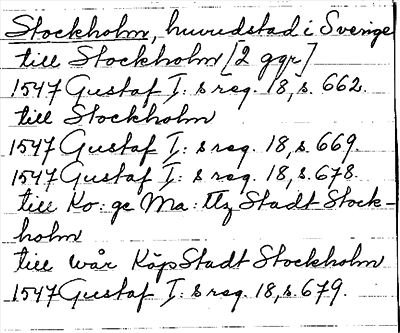 Stockholm, huvudstad i Sverige
till Stockholm [2 ggr]
1547 Gustaf I: s reg. 18, s. 662.
till Stockholm
1547 Gustaf I: s reg. 18, s. 669.
1547 Gustaf I: s reg. 18, s. 678.
till Ko: ge Ma: ttz Stadt Stock-
holm
till wår KöpStadt Stockholm
1547 Gustaf I: s reg. 18, s. 679.